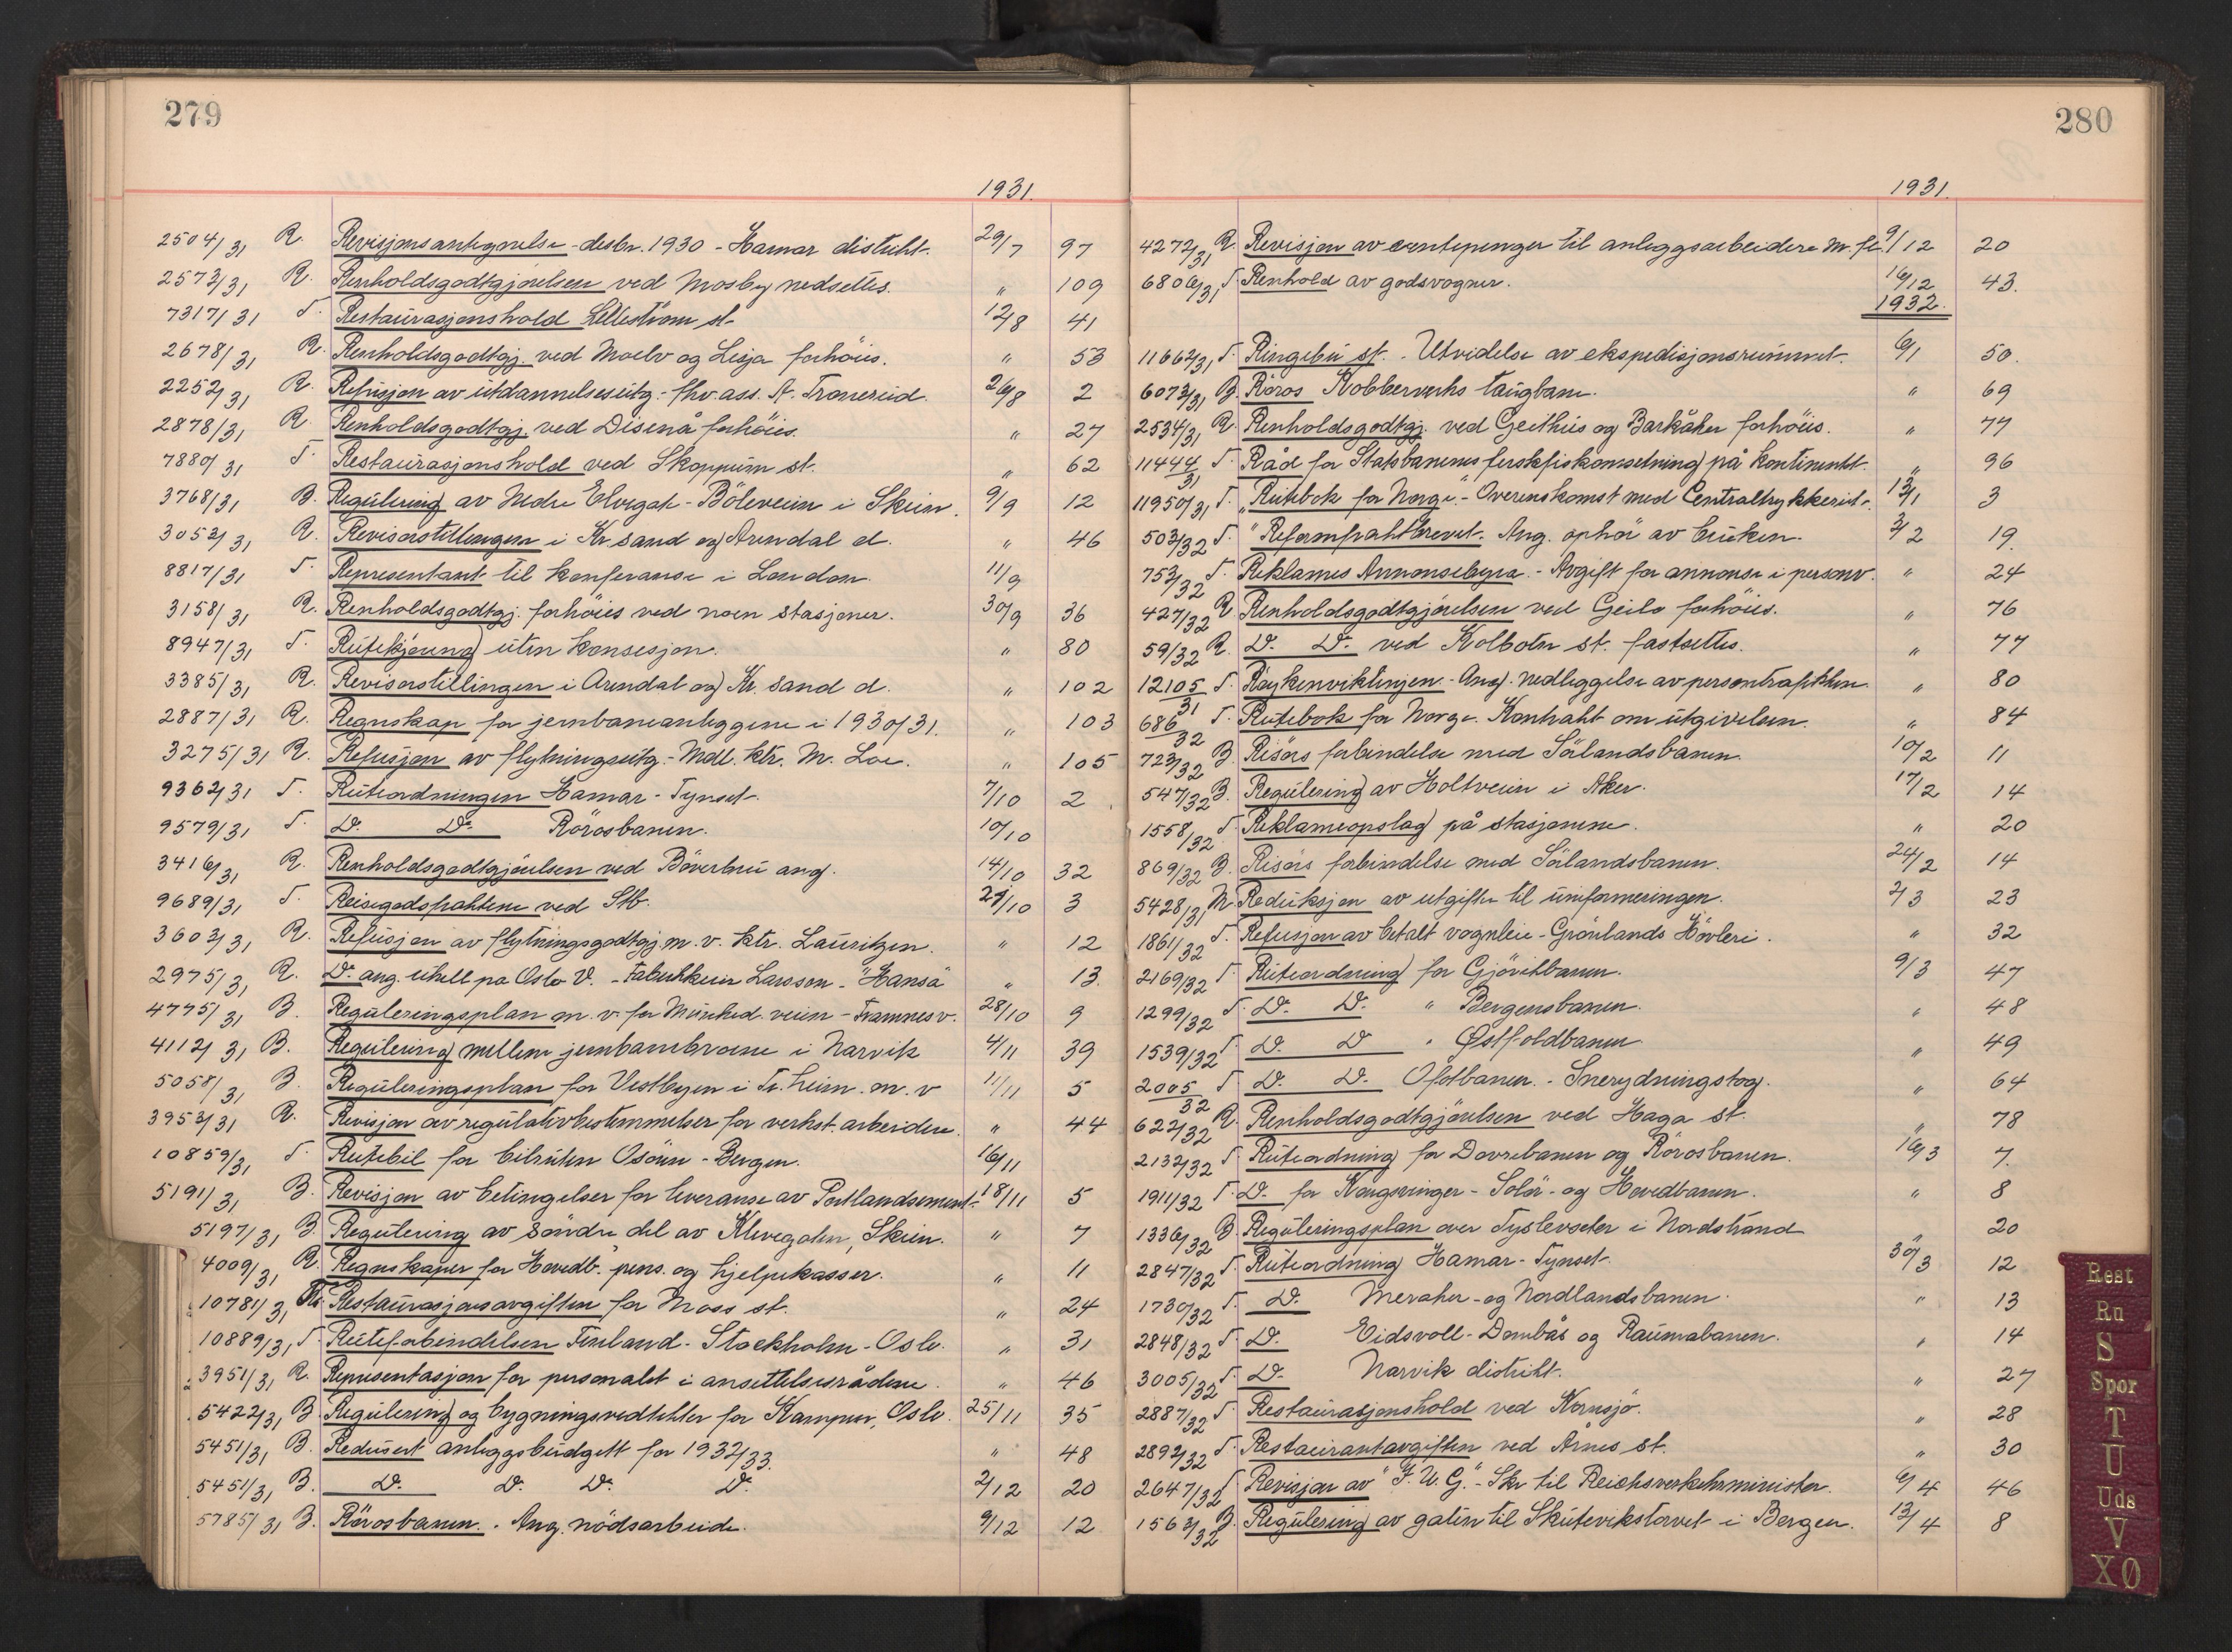 279
1931.
2504/31 R. Revisjonsantegnelse - desbr. 1930 - Hamar distrikt. 29/7 97
2573/31 R. Renholdsgodtgjørelsen ved Mosby nedsettes. " 109
7317/31 T. Restaurasjonshold Lilleström st. 12/8 41
2678/31 R. Renholdsgodtgj. ved Moelv og Lesja forhöies. " 53
2252/31 R. Refusjon av utdannelsesutg. - fhv. ass. A. Tronerud. 26/8 2
2878/31 R. Renholdsgodtgj. ved Disenå forhöies. " 27
7880/31 T. Restaurasjonshold ved Skoppum st. " 62
3768/31 B. Regulering av Nedre Elvegate - Böleveien i Skien. 9/9 12
3052/31 R. Revisorstillingen i Kr.sand og Arendal d. " 46
8817/31 T. Representant til konferanse i London. 11/9
3158/31 R. Renholdsgodtgj. forhöies ved noen stasjoner. 30/9 36
8947/31 T. Rutekjöring uten konsesjon. " 80
3385/31 R. Revisorstillingen i Arendal og Kr. sand d. " 102
2887/31 R. Regnskap for jernbaneanleggene i 1930/31. " 103
3275/31 R. Refusjon av flytningsutg. - Mdl. ktr. M. Loe. " 105
9362/31 T. Ruteordningen Hamar - Tynset. 7/10 2
9579/31 T. Do. Do. Rörosbanen. 10/10
3416/31 R. Renholdsgodtgjörelsen ved Böverbru ang. 14/10 32
9689/31 T. Reisegodsfraktene ved Stb. 21/10 3
3603/31 R. Refusjon av flytningsgodtgj. m. v. ktr. Lauritzen. " 12
2975/31 R. Do. ang. uhell på Oslo V. - Fabrikkeier Larsson - "Hansa" " 13.
4775/31 B. Reguleringsplan m. v. for Munked. veien - Framnesv. 28/10 9
4112/31 B. Regulering mellem jernbanebroene i Narvik 4/11 39
5058/31 B. Reguleringsplan for Vestbyen i Tr.heim. m. v 11/11 5
3953/31 R. Revisjon av regulativbestemmelser for verkst. arbeidere. " 44
10859/31 T. Rutebil for bilruten Osören - Bergen. 16/11
5191/31 B. Revisjon av betingelser for leveranse av Portlandsement. 18/11 5
5197/31 B. Regulering av söndre del av Klevegaten, Skien. " 7
4009/31 R. Regnskaper for Hovedb. pens. og hjelpekasser. " 11
10781/31 Restaurasjonsavgiften for Moss st. " 24
10889/31 T. Ruteforbindelsen Finland - Stockholm - Oslo. " 31
3951/31 R. Representasjon for personalet i ansettelsesrådene. " 46
5422/31 B. Regulering og bygningsvedtekter for Kampen, Oslo. 25/11 35
5451/31 B. Redusert anleggsbudgett for 1932/33. " 48
5451/31 B. Do. Do. Do. Do. 2/12 20
5785/31 B. Rörosbanen. - Ang. nödsarbeide. 9/12 12
280
1931.
4272/31 R. Revisjon av ventepenger til anleggsarbeidere m. fl. 9/12 20
6806/31 T. Renhold av godsvogner. 16/12 43.
1932.
11662/31 T. Ringebu st. - Utvidelse av ekspedisjonsrummet. 6/1 50.
6073/31 B. Röros Kobberverks taugbane. " 69
2534/31 R. Renholdsgodtgj. ved Geithus og Barkåker forhöies. " 77
11444/31 T. Råd for Statsbanenes ferskfiskomsetning på kontinentet. " 96
11950/31 T. "Rutebok for Norge" - Overenskomst med Centraltrykkeriet. 13/1 3
503/32 T. "Reformfraktbrevet". Ang. ophör av bruken. 3/2 19.
753/32 T. Reklames Annonsebyrå. - Avgift for annonse i personv. " 24
427/32 R Renholdsgodtgjörelsen ved Geilo forhöies. " 76
59/32 R. Do. Do. ved Kolbotn st. fastsettes. " 77
12105/31 T. Röykenviklinjen. - Ang. nedleggelse av persontrafikken. " 80
686/32 T. Rutebok for Norge. Kontrakt om utgivelsen. " 84
723/32 B. Risörs forbindelse med Sörlandsbanen. 10/2 11
547/32 B. Regulering av Holtveien i Aker. 17/2 14
1558/32 T. Reklameopslag på stasjonene. " 20
869/32 B. Risörs forbindelse med Sörlandsbanen. 24/2 14
5428/31 M. Reduksjon av utgifter til uniformeringen. 2/3 23
1861/32 T. Refusjon av betalt vognleie - Grönlands Hövleri. " 32
2169/32 T. Ruteordning for Gjövikbanen. 9/3 47
1299/32 T. Do. Do. " Bergensbanen. " 48
1539/32 T. Do. Do " Østfoldbanen " 49
2005/32 T Do. Do. Ofotbanen. - Snerydningstog. " 64
622/32 R. Renholdsgodtgjörelsen ved Haga st. " 78
2132/32 T. Ruteordning for Dovrebanen og Rörosbanen. 16/3 7.
1911/32 T. Do. for Kongsvinger - Solör - og Hovedbanen. " 8
1336/32 B. Reguleringsplan over Tyslevseter i Nordstrand " 20
2847/32 T. Ruteordning Hamar - Tynset. 30/3 12
1730/32 T. Do. Meraker - og Nordlandsbanen. " 13
2848/32 T. Do. Eidsvoll - Dombås og Raumabanen. " 14
3005/32 T. Do. Narvik distrikt. " 27
2887/32 T. Restaurasjonshold ved Kornsjö. " 28
2892/32 T. Restaurantavgiften ved Årnes st. " 30
2647/32 T Revisjon av "J. U. G." - Skr til Reichsverkehrminister. 6/4 46
1563/32 B. Regulering av gaten til Skutevikstorvet i Bergen. 13/4 8
Rest
Ru
S
Spor
T
U
Uds
V
XØ